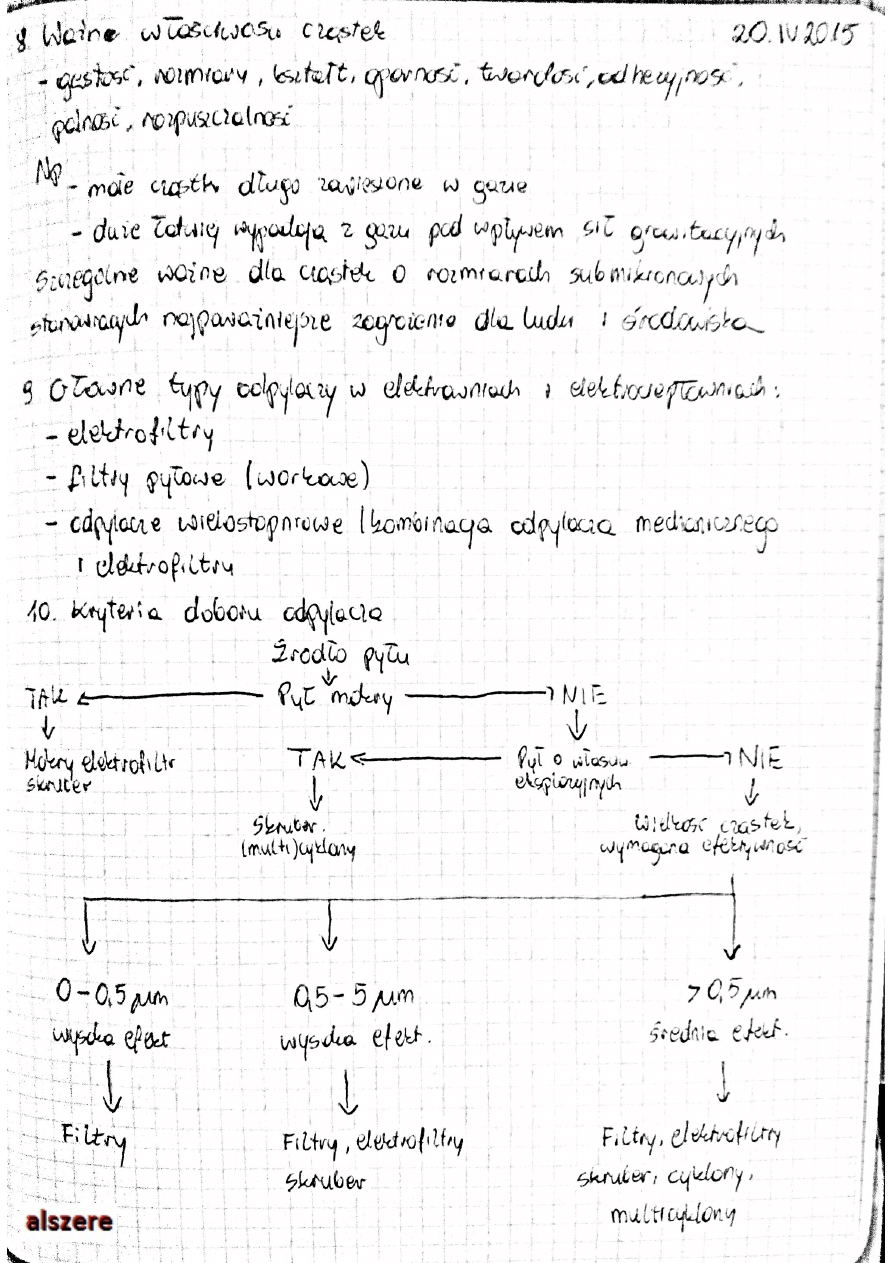 8 Ważne właściwości cząstek 20.IV2015
- gęstość, rozmiary, kształt, oporność, twardość, adhezyjność,
palność, rozpuszczalność
Np - małe cząstki długo zawieszone w gazie
- duże łatwiej wypadają z gazu pod wpływem sił grawitacyjnych
Szczególnie ważne dla cząstek o rozmiarach submikronowych
stanowiących najpoważniejsze zagrożenie dla ludzi i środowiska
9 Główne typy odpylaczy w elektrowniach i elektrociepłowniach:
- elektrofiltry
- filtry pyłowe (workowe)
- odpylacze wielostopniowe (kombinacja odpylacza mechanicznego
i elektrofiltru
10. Kryteria doboru odpylacza
Źrodło pyłu
TAK Pył mokry NIE
Mokry elektrofiltr TAK Pył o własciw. NIE
skruber eksplozyjnych
Skruber. Wielkość cząstek,
(multi)cyklony wymagana efektywność
0-0,5 µm 0,5-5 µm >0,5 µm
wysoka efekt wysoka efekt. średnia efekt.
Filtry Filtry, elektrofiltry Filtry, elektrofiltry
skruber skruber, cyklony,
multicyklony
alszere